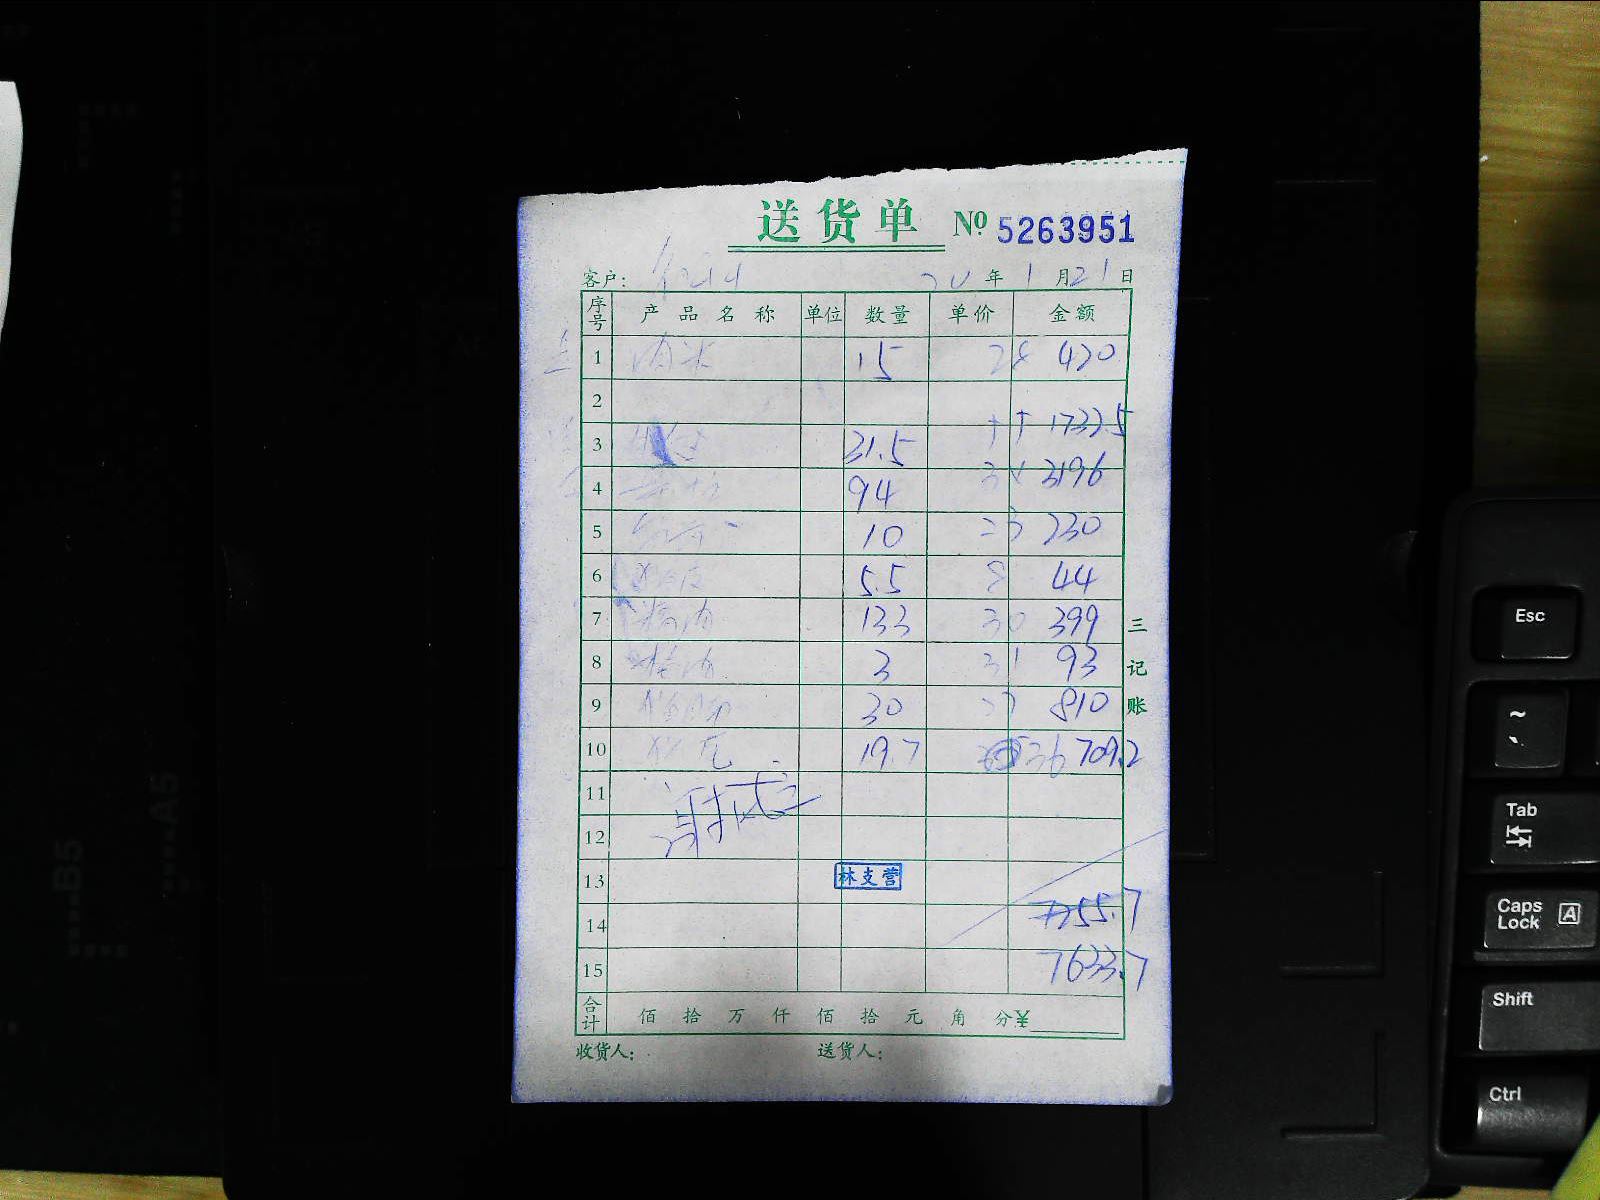 送货单 № 5263951
客户: 20年1月21日
序号 产品名称 单位 数量 单价 金额
1 肉米 15 28 420
2
3 31.5 55 1732.5
4 94 34 3196
5 10 23 230
6 5.5 8 44
7 精肉 133 30 399
8 3 31 93
9 30 27 810
10 19.7 36 709.2
11
12
13 林支营
14 7255.7
15 7633.7
合计 佰 拾 万 仟 佰 拾 元 角 分¥
收货人: 送货人:
三 记账
Esc
~
`
Tab
Caps Lock A
Shift
Ctrl
B5
A5